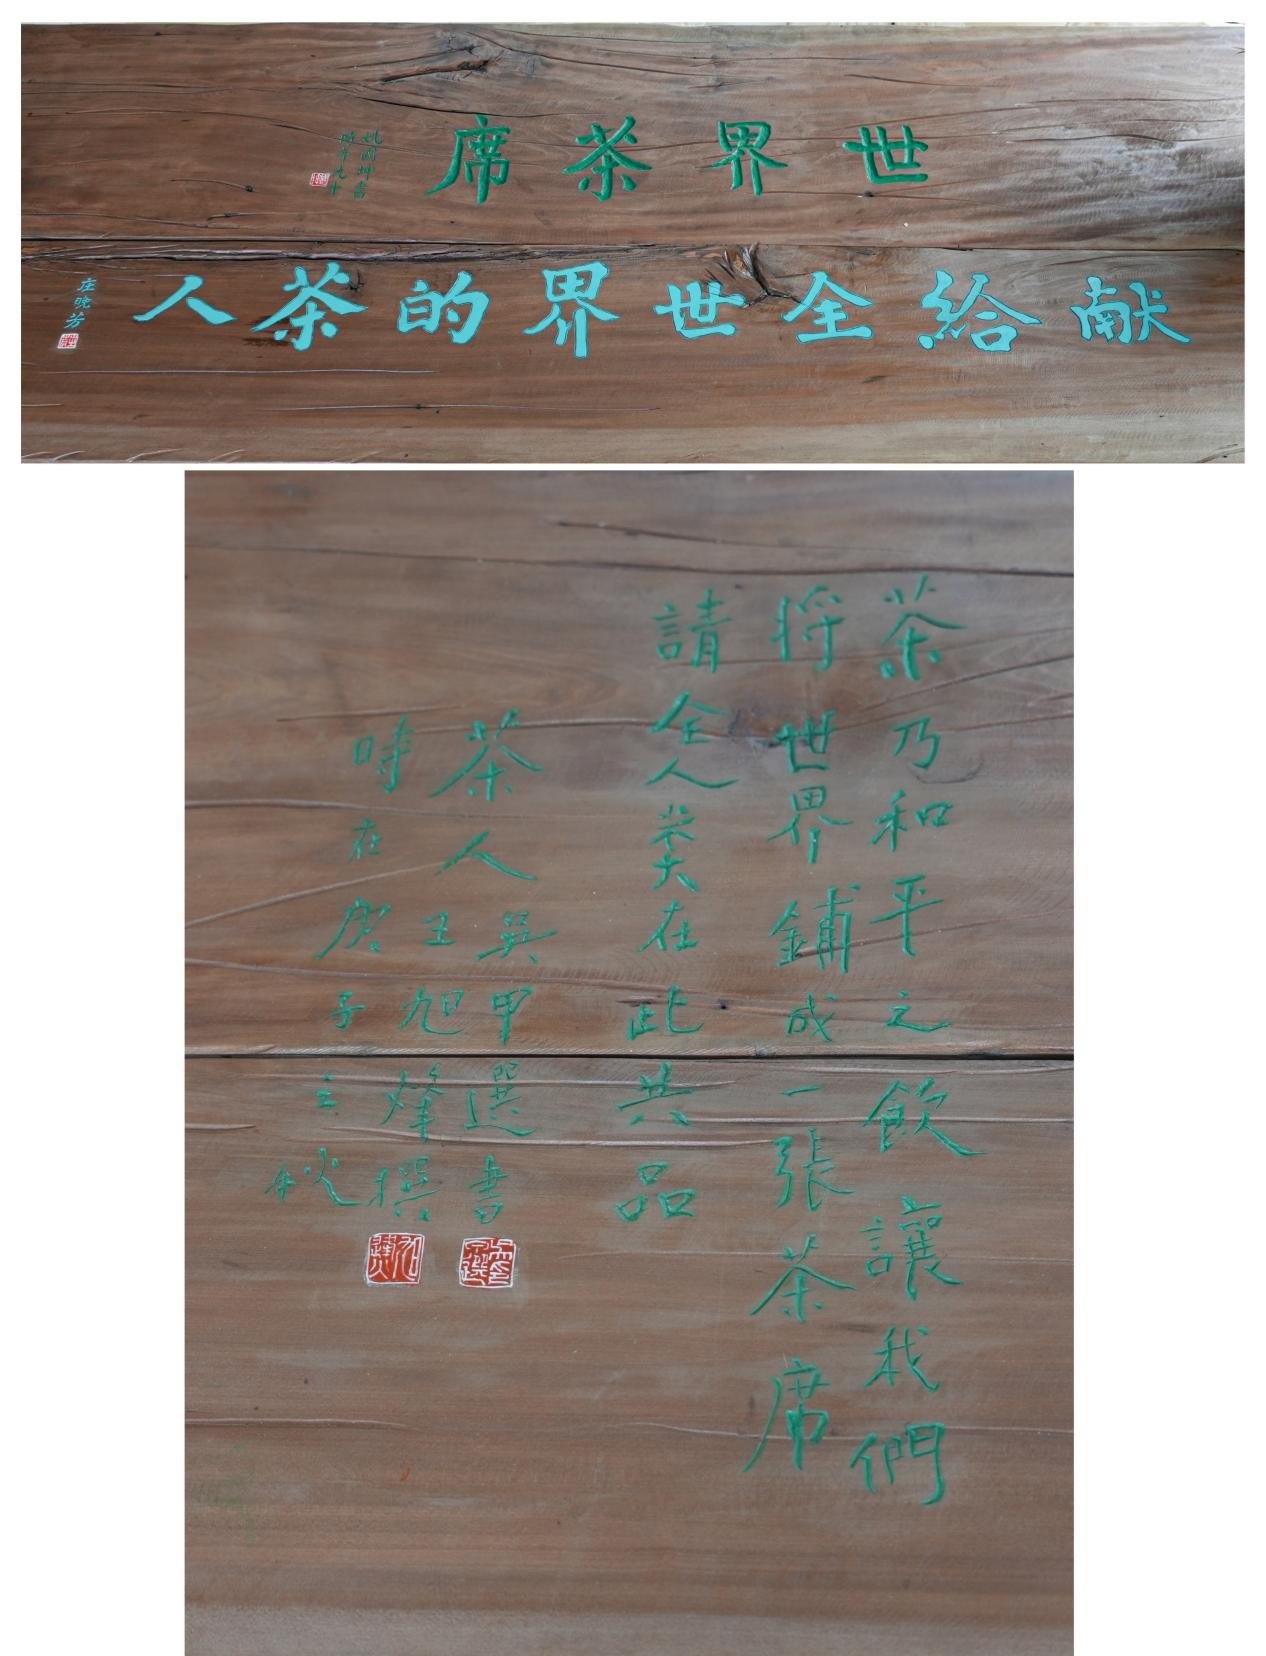 世界茶席
姚國坤書
時年九十
献給全世界的茶人
庄晚芳
茶乃和平之飲讓我們
将世界鋪成一張茶席
請全人类在此共品
茶人吳甲選書
王旭烽撰
時在庚子之秋